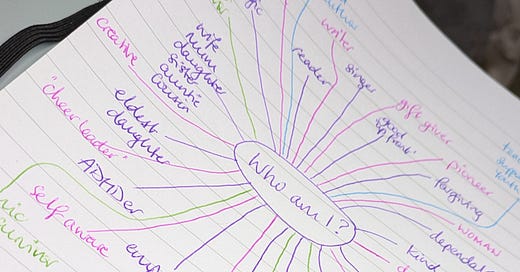 Who am I?
creative
wife
mum
daughter
sister
auntie
cousin
eldest
daughter
"cheerleader"
ADHDer
self aware
reader
writer
singer
gift giver
good
"up front"
pioneer
forgiving
woman
dependable
kind